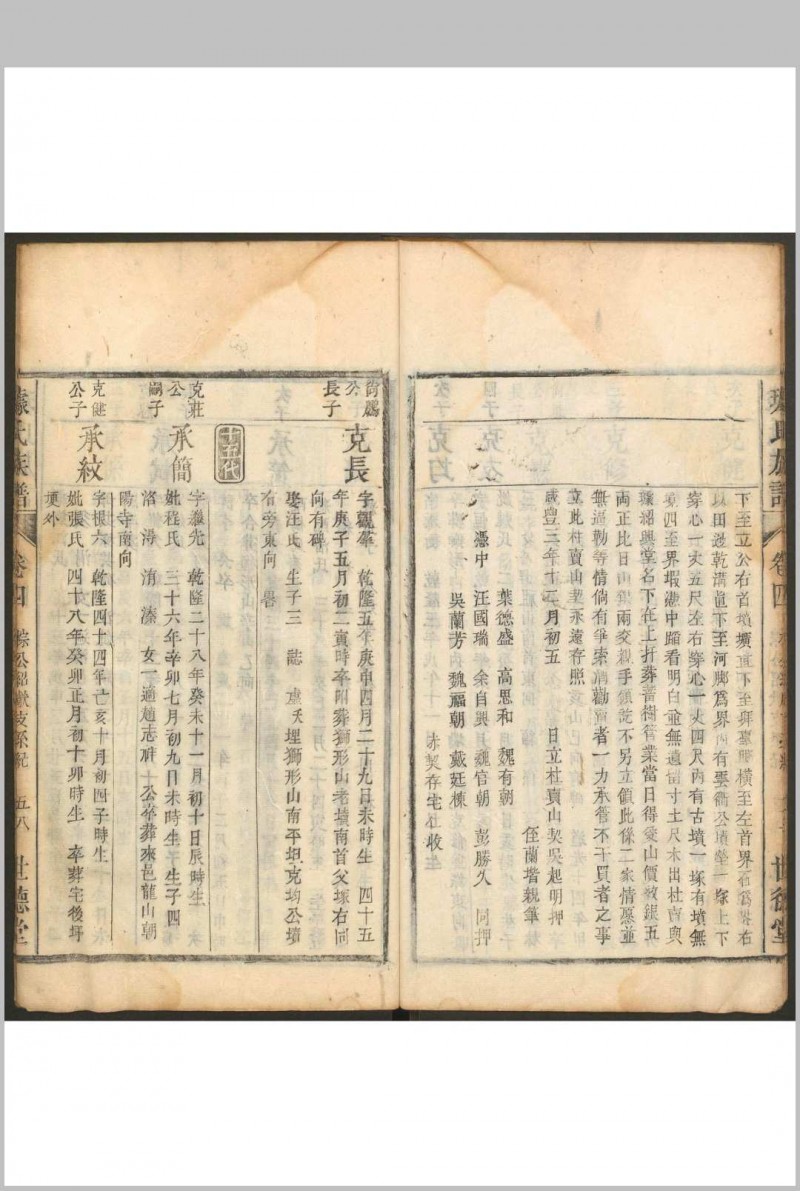 下至立公右首墳壙直下至拜臺脚橫至左首界石爲界右
以田邊乾溝直下至河脚爲界內有雲衢公墳塋一塚上下
穿心一丈五尺左右穿心一丈四尺內有古墳一塚有墳無
四至界堘憑中踏看明白並無遺留寸土尺木出杜賣與
璩紹興堂名下在上扦葬蓄樹管業當日得受山價紋銀五
兩正比日山銀兩交親手領訖不另立領此係二家情愿並
無逼勒等情倘有爭索滴勸賣者一力承管不干買者之事
立此杜賣山契永遠存照
咸豐三年十二月初五 日立杜賣山契吳起明押
侄蘭堦親筆
葉德盛 高思和 魏有朝
憑中 汪國瑞 余自興 魏官朝 彭勝久 同押
吳蘭芳 魏福朝 戴廷棟
赤契存宅仕收
克長
公長子
字觀華 乾隆五年庚申四月二十九日未時生 四十五
年庚子五月初二寅時卒附葬獅形山老墳南首父塚右同
向有碑
娶汪氏 生子三 誌 歿 埋獅形山南平坦克均公墳
右旁東向
十五代
克莊公嗣子
承簡
字 光 乾隆二十八年癸未十一月初十日辰時生
妣程氏 三十六年辛卯七月初九日未時生 生子四
洛 潯 湑 溱 女一適趙志 公卒葬來邑龍山朝
陽寺南向
克健公子
承紋
字振六 乾隆四十四年亡亥十月初四子時生
妣張氏 四十八年癸卯正月初十卯時生 卒葬宅後圩
埂外
璩氏族譜 卷四 五八 世德堂
璩氏族譜 卷四 世德堂